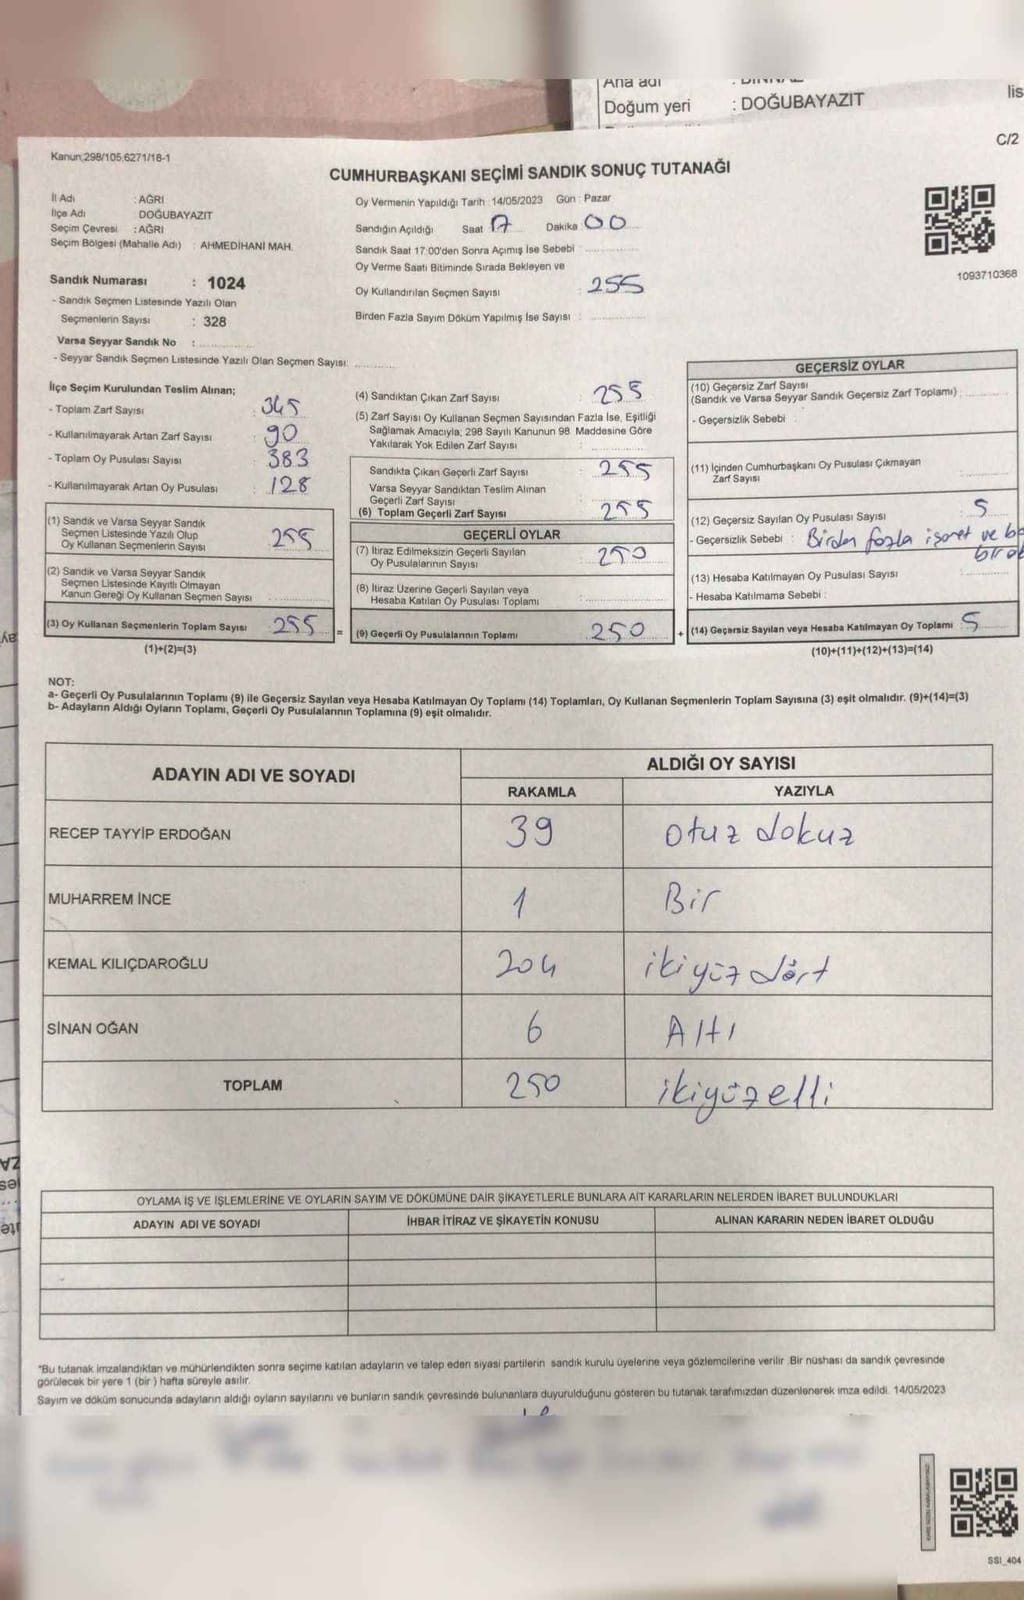 Ana adı
Doğum yeri : DOĞUBAYAZIT
lis
C/2
Kanun;298/105,6271/18-1
CUMHURBAŞKANI SEÇİMİ SANDIK SONUÇ TUTANAĞI
İl Adı : AĞRI
İlçe Adı DOĞUBAYAZIT
Seçim Çevresi : AĞRI
Seçim Bölgesi (Mahalle Adı) : AHMEDİHANİ MAH.
Oy Vermenin Yapıldığı Tarih : 14/05/2023 Gün : Pazar
Sandığın Açıldığı Saat 17 Dakika 00
Sandık Saat 17:00'den Sonra Açımış İse Sebebi :
Oy Verme Saati Bitiminde Sırada Bekleyen ve
Oy Kullandırılan Seçmen Sayısı : 255
Birden Fazla Sayım Döküm Yapılmış İse Sayısı :
1093710368
Sandık Numarası : 1024
- Sandık Seçmen Listesinde Yazılı Olan
Seçmenlerin Sayısı : 328
Varsa Seyyar Sandık No :
- Seyyar Sandık Seçmen Listesinde Yazılı Olan Seçmen Sayısı:
İlçe Seçim Kurulundan Teslim Alınan;
- Toplam Zarf Sayısı : 345
- Kullanılmayarak Artan Zarf Sayısı : 90
- Toplam Oy Pusulası Sayısı : 383
- Kullanılmayarak Artan Oy Pusulası : 128
(1) Sandık ve Varsa Seyyar Sandık
Seçmen Listesinde Yazılı Olup
Oy Kullanan Seçmenlerin Sayısı : 255
(2) Sandık ve Varsa Seyyar Sandık
Seçmen Listesinde Kayıtlı Olmayan
Kanun Gereği Oy Kullanan Seçmen Sayısı :
(3) Oy Kullanan Seçmenlerin Toplam Sayısı : 255 =
(1)+(2)=(3)
(4) Sandıktan Çıkan Zarf Sayısı : 255
(5) Zarf Sayısı Oy Kullanan Seçmen Sayısından Fazla İse, Eşitliği
Sağlamak Amacıyla; 298 Sayılı Kanunun 98. Maddesine Göre
Yakılarak Yok Edilen Zarf Sayısı :
Sandıkta Çıkan Geçerli Zarf Sayısı : 255
Varsa Seyyar Sandıktan Teslim Alınan
Geçerli Zarf Sayısı :
(6) Toplam Geçerli Zarf Sayısı : 255
GEÇERLİ OYLAR
(7) İtiraz Edilmeksizin Geçerli Sayılan
Oy Pusulalarının Sayısı : 250
(8) İtiraz Üzerine Geçerli Sayılan veya
Hesaba Katılan Oy Pusulası Toplamı :
(9) Geçerli Oy Pusulalarının Toplamı : 250 +
GEÇERSİZ OYLAR
(10) Geçersiz Zarf Sayısı
(Sandık ve Varsa Seyyar Sandık Geçersiz Zarf Toplamı) :
- Geçersizlik Sebebi :
(11) İçinden Cumhurbaşkanı Oy Pusulası Çıkmayan
Zarf Sayısı
(12) Geçersiz Sayılan Oy Pusulası Sayısı : 5
- Geçersizlik Sebebi : Birden fazla işaret ve
(13) Hesaba Katılmayan Oy Pusulası Sayısı :
- Hesaba Katılmama Sebebi :
(14) Geçersiz Sayılan veya Hesaba Katılmayan Oy Toplamı : 5
(10)+(11)+(12)+(13)=(14)
NOT:
a- Geçerli Oy Pusulalarının Toplamı (9) ile Geçersiz Sayılan veya Hesaba Katılmayan Oy Toplamı (14) Toplamları, Oy Kullanan Seçmenlerin Toplam Sayısına (3) eşit olmalıdır. (9)+(14)=(3)
b- Adayların Aldığı Oyların Toplamı, Geçerli Oy Pusulalarının Toplamına (9) eşit olmalıdır.
ADAYIN ADI VE SOYADI ALDIĞI OY SAYISI
RAKAMLA YAZIYLA
RECEP TAYYİP ERDOĞAN 39 otuz dokuz
MUHARREM İNCE 1 Bir
KEMAL KILIÇDAROĞLU 204 ikiyüz dört
SİNAN OĞAN 6 Altı
TOPLAM 250 ikiyüzelli
OYLAMA İŞ VE İŞLEMLERİNE VE OYLARIN SAYIM VE DÖKÜMÜNE DAİR ŞİKAYETLERLE BUNLARA AİT KARARLARIN NELERDEN İBARET BULUNDUKLARI
ADAYIN ADI VE SOYADI İHBAR İTİRAZ VE ŞİKAYETİN KONUSU ALINAN KARARIN NEDEN İBARET OLDUĞU
*Bu tutanak imzalandıktan ve mühürlendikten sonra seçime katılan adayların ve talep eden siyasi partilerin sandık kurulu üyelerine veya gözlemcilerine verilir. Bir nüshası da sandık çevresinde
görülecek bir yere 1 (bir ) hafta süreyle asılır.
Sayım ve döküm sonucunda adayların aldığı oyların sayılarını ve bunların sandık çevresinde bulunanlara duyurulduğunu gösteren bu tutanak tarafımızdan düzenlenerek imza edildi. 14/05/2023
SSI_404